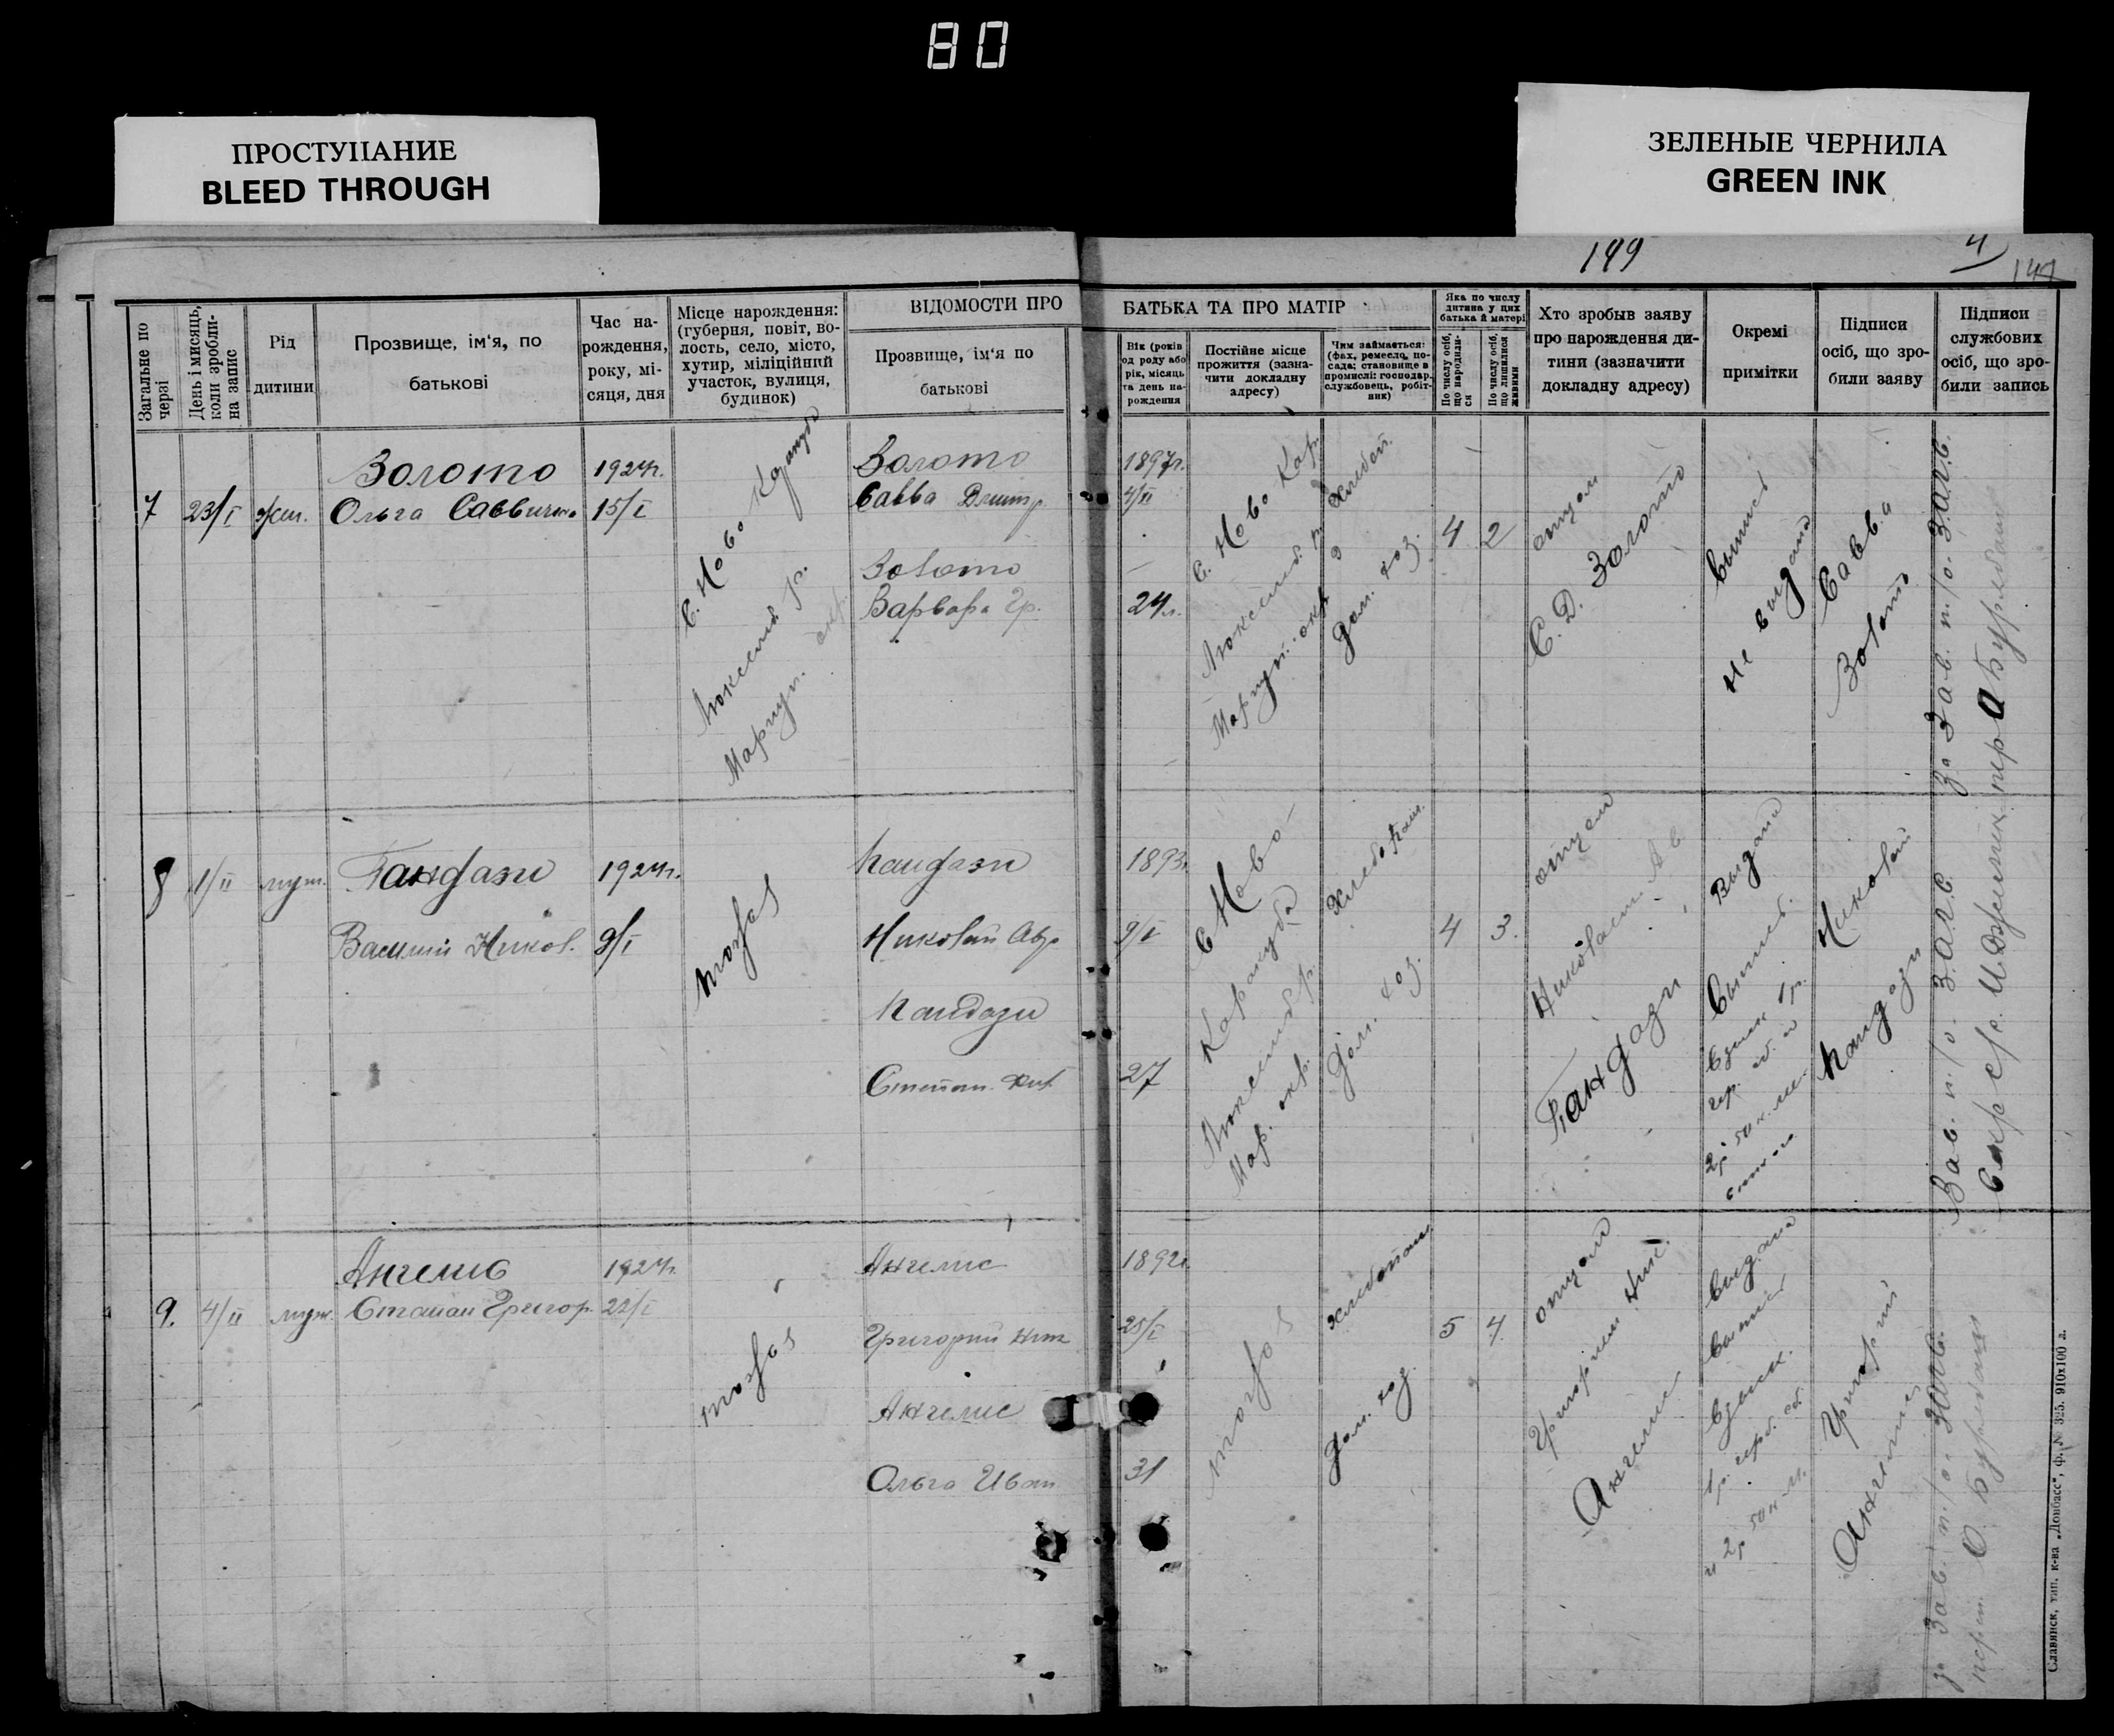 80
ПРОСТУПАНИЕ
BLEED THROUGH
ЗЕЛЕНЫЕ ЧЕРНИЛА
GREEN INK
199
4
147
ВІДОМОСТИ ПРО
БАТЬКА ТА ПРО МАТІР
Загальне по
черзі
День і місяць,
коли зробли-
на запис
Рід
дитини
Прозвище, ім'я, по
батькові
Час на-
рождення,
року, мі-
сяця, дня
Місце нарождення:
(губерня, повіт, во-
лость, село, місто,
хутир, міліційний
участок, вулиця,
будинок)
Прозвище, ім'я по
батькові
Вік (років
од роду або
рік, місяць
та день на-
рождення
Постійне місце
прожиття (зазна-
чити докладну
адресу)
Чим займається:
(фах, ремесло, по-
сада; становище в
промислі: господар,
службовець, робіт-
ник)
Яка по числу
дитина у цих
батька й матері
По числу осіб,
що народили-
ся
По числу осіб,
що лишилися
живими
Хто зробыв заяву
про нарождення ди-
тини (зазначити
докладну адресу)
Окремі
примітки
Підписи
осіб, що зро-
били заяву
Підписи
службових
осіб, що зро-
били запись
7
23/I
жен.
Золото
Ольга Саввична
1924г.
15/I
С. Ново Каракуба
Люксемб. р.
Мариуп. окр.
Золото
Савва Дмитр
Золото
Варвара Гр.
1897г.
4/II
24л.
С. Ново Кар.
Люксемб. р.
Мариуп. окр.
Хлебоп.
Дом. хоз.
4
2
отцом
С. Д. Золото
Выпись
не выдана
Савва
Золото
За Зав. п/о. ЗАГС.
8
1/II
муж.
Пандази
Василий Никол.
1924г.
9/I
тоже
Пандази
Николай Авр
Пандази
Степан.
1893г.
9/I
27
С Ново-
Каракуба
Люксемб р.
Мар. окр.
Хлебопаш.
Дом. хоз.
4
3.
отцем
Николаем
Пандази
Выдана
Выпись.
Николай
Пандази
Зав. п/о. ЗАГС.
9.
4/II
муж.
Ангелис
Степан Григор.
1924г.
22/I
тоже
Ангелис
Григорий Ник
Ангелис
Ольга Иван
1892г.
25/I
31
тоже
хлебопаш
Дом. хоз.
5
4.
отцом
Григорием Ник.
Ангелис
Выдана
Выпись
и 2р 50к.
Григорий
Ангелис
За Зав. п/о. ЗАГС.
Славянск, тип. к-ва „Донбасс", ф. № 325. 910х100 л.